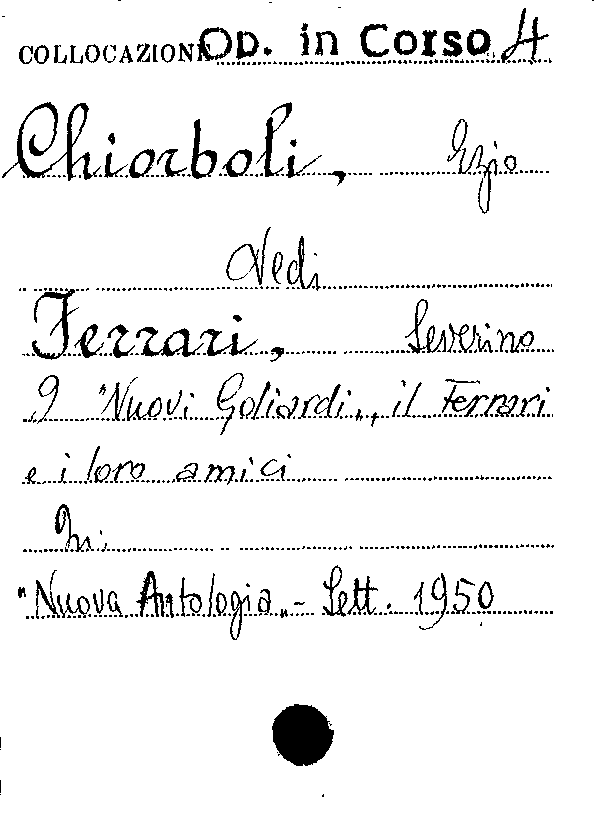 COLLOCAZIONE Op. in Corso 4
Chiorboli, Ezio
Vedi
Ferrari, Severino
I "Nuovi Goliardi„, il Ferrari
e i loro amici
In:
"Nuova Antologia„ - Sett. 1950